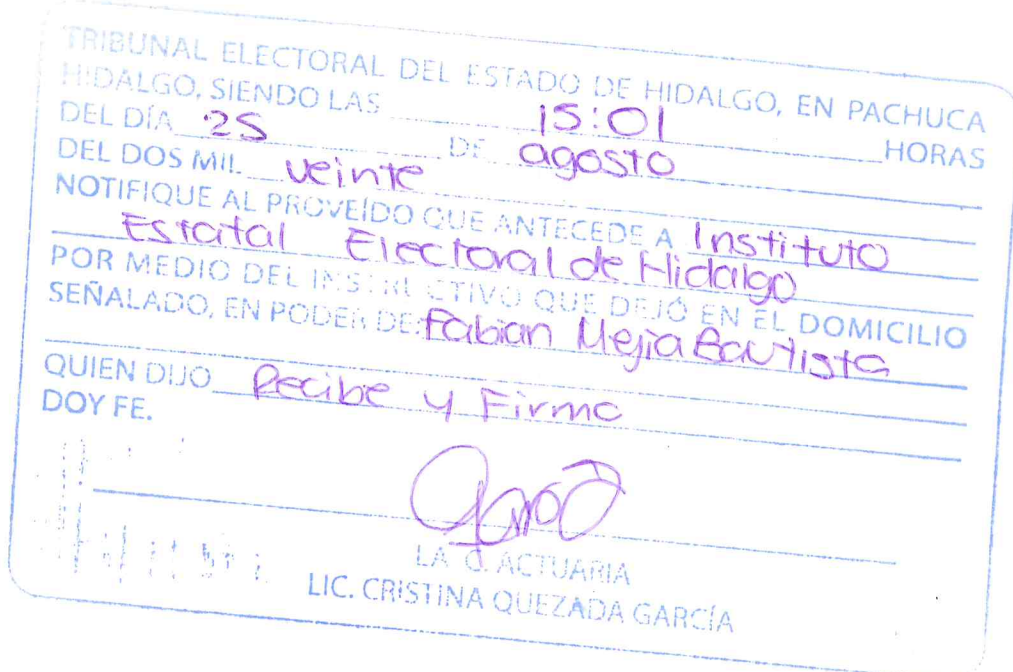 TRIBUNAL ELECTORAL DEL ESTADO DE HIDALGO, EN PACHUCA
HIDALGO, SIENDO LAS 15:01 HORAS
DEL DÍA 25 DE agosto
DEL DOS MIL veinte
NOTIFIQUE AL PROVEÍDO QUE ANTECEDE A Instituto
Estatal Electoral de Hidalgo
POR MEDIO DEL INSTRUCTIVO QUE DEJÓ EN EL DOMICILIO
SEÑALADO, EN PODER DE: Fabian Mejia Bautista
QUIEN DIJO Recibe y Firma
DOY FE.
LA C. ACTUARIA
LIC. CRISTINA QUEZADA GARCÍA